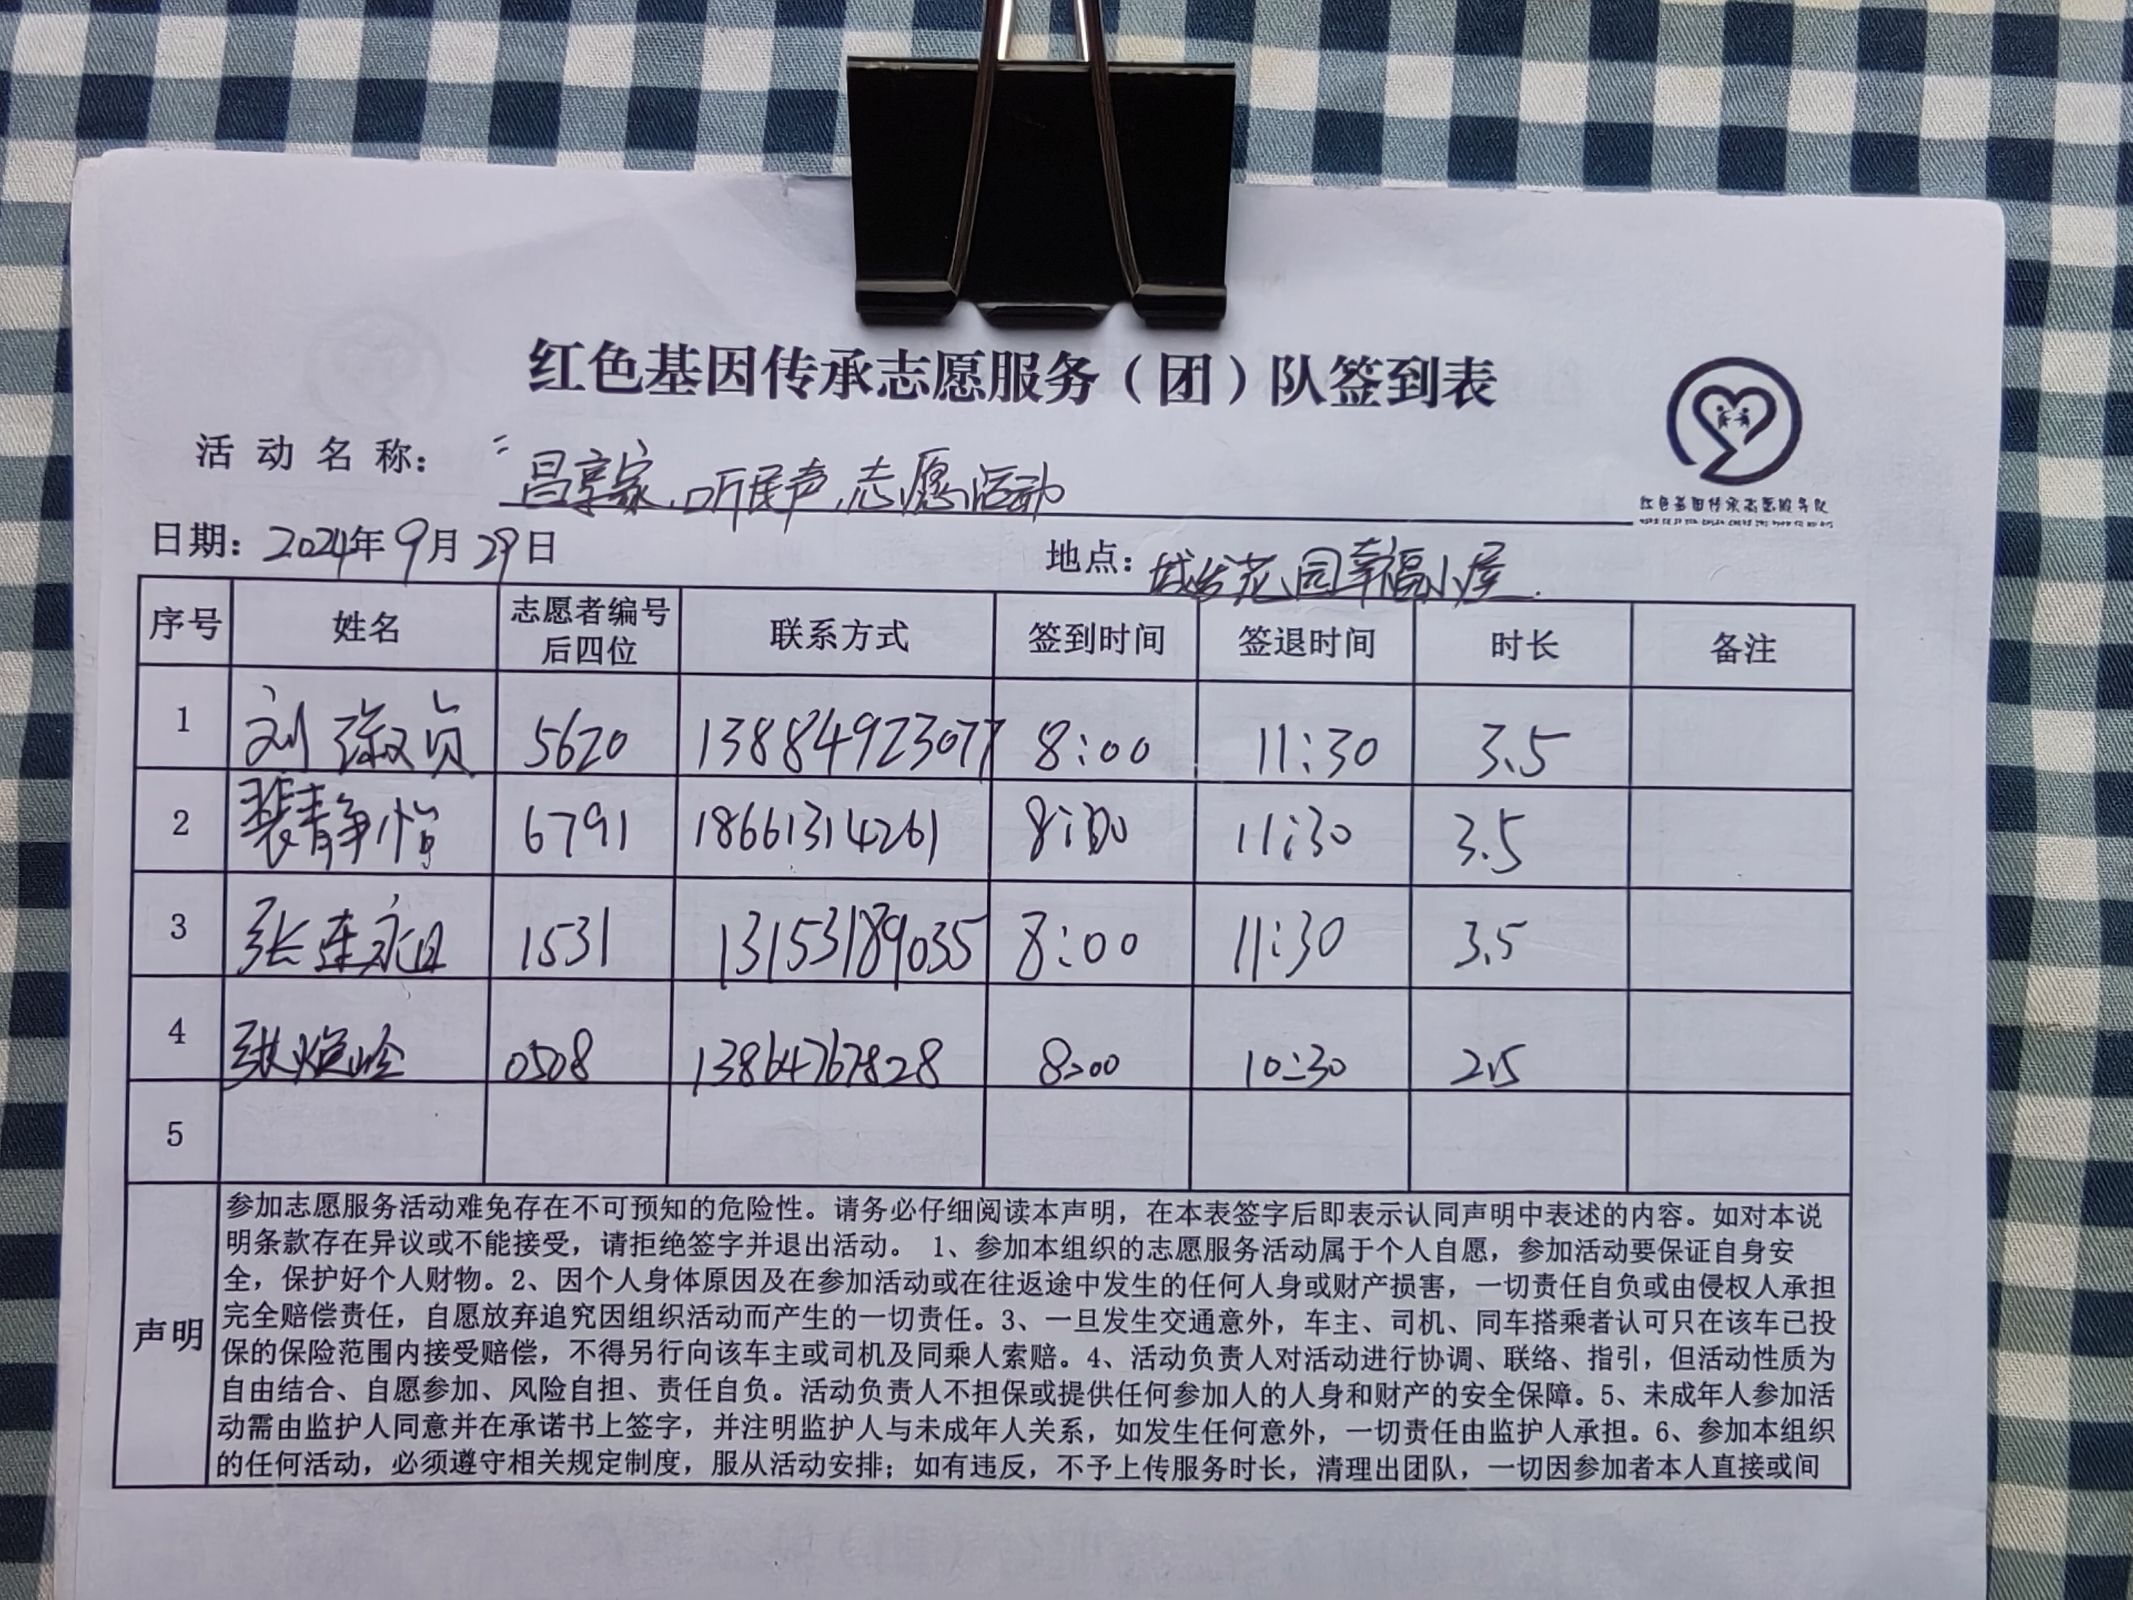 红色基因传承志愿服务（团）队签到表
活动名称：昌享家，听民声，志愿活动
红色基因传承志愿服务队
日期：2024年9月29日 地点：城发花园幸福小屋
序号 姓名 志愿者编号后四位 联系方式 签到时间 签退时间 时长 备注
1 刘淑贞 5620 13884923077 8:00 11:30 3.5
2 裴静怡 6791 18661314261 8:00 11:30 3.5
3 张连 1531 13153189035 8:00 11:30 3.5
4 张焕玲 0508 13864767828 8:00 10:30 2.5
5
声明
参加志愿服务活动难免存在不可预知的危险性。请务必仔细阅读本声明，在本表签字后即表示认同声明中表述的内容。如对本说
明条款存在异议或不能接受，请拒绝签字并退出活动。 1、参加本组织的志愿服务活动属于个人自愿，参加活动要保证自身安
全，保护好个人财物。2、因个人身体原因及在参加活动或在往返途中发生的任何人身或财产损害，一切责任自负或由侵权人承担
完全赔偿责任，自愿放弃追究因组织活动而产生的一切责任。3、一旦发生交通意外，车主、司机、同车搭乘者认可只在该车已投
保的保险范围内接受赔偿，不得另行向该车主或司机及同乘人索赔。4、活动负责人对活动进行协调、联络、指引，但活动性质为
自由结合、自愿参加、风险自担、责任自负。活动负责人不担保或提供任何参加人的人身和财产的安全保障。5、未成年人参加活
动需由监护人同意并在承诺书上签字，并注明监护人与未成年人关系，如发生任何意外，一切责任由监护人承担。6、参加本组织
的任何活动，必须遵守相关规定制度，服从活动安排；如有违反，不予上传服务时长，清理出团队，一切因参加者本人直接或间